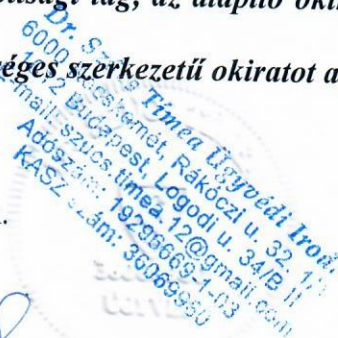 tag, az alapító oki
éges szerkezetű okiratot a
Dr. Szűcs Tímea Ügyvédi Irod
6000 Kecskemét, Rákóczi u. 32. 1/
1012 Budapest, Logodi u. 34/B II
Email: szucs.timea.12@gmail.com
Adószám: 19296669-1-03
KASZ szám: 36069960